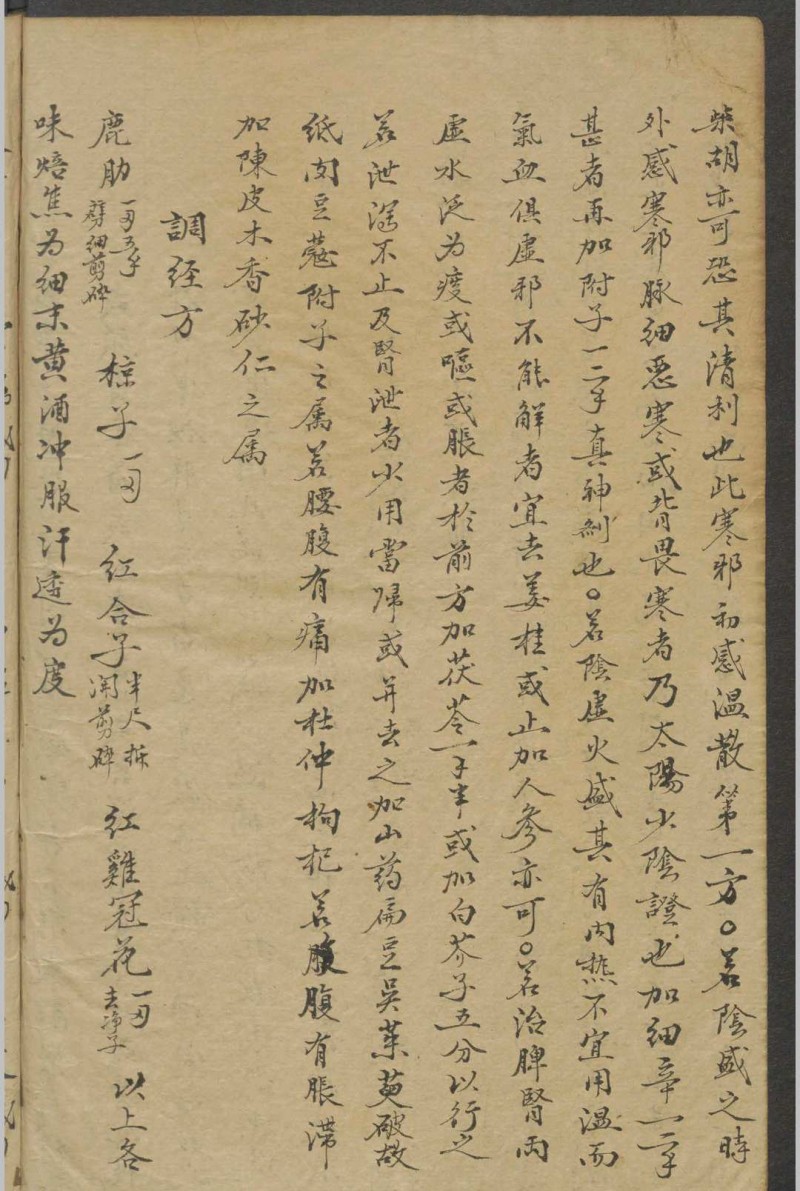 柴胡亦可恐其清利也此寒邪初感溫散第一方。若陰盛之時
外感寒邪脉細惡寒或背畏寒者乃太陽少陰證也加細辛一二
甚者再加附子一二真神劑也。若陰虛火盛其有內熱不宜用溫而
氣血俱虛邪不能解者宜去姜桂或止加人參亦可。若治脾腎兩
虛水泛为痰或嘔或脹者於前方加茯苓一半或加白芥子五分以行之
若泄瀉不止及腎泄者少用當歸或并去之加山药扁豆吳茱萸破故
纸肉豆蔻附子之属若腰腹有痛加杜仲枸杞若腹腹有脹滞
加陳皮木香砂仁之属
調経方
鹿肋 一两五 劈細剪碎 椋子 一两 紅合子 半尺拆开剪碎 紅雞冠花 一两去净子 以上各
味焙焦为細末黄酒冲服汗透为度